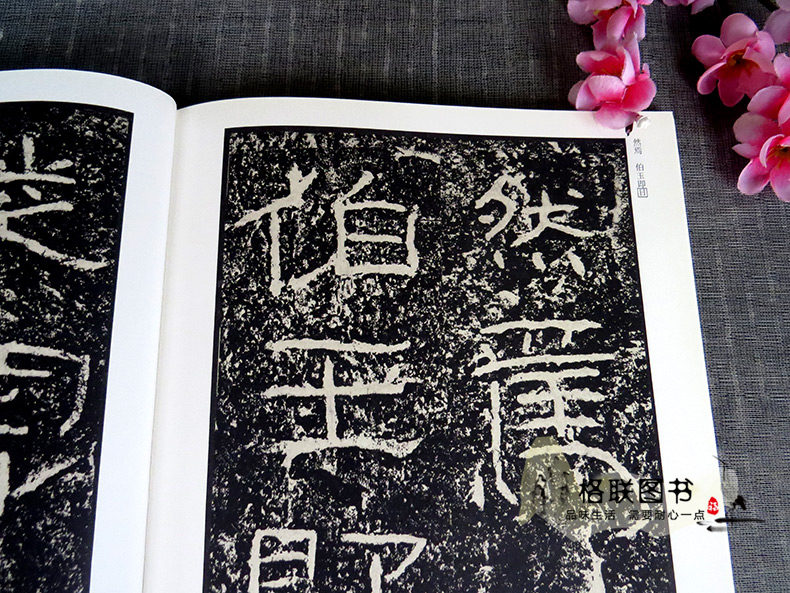 然焉
伯玉即
然焉 伯玉即日
格联图书
品味生活 需要耐心一点